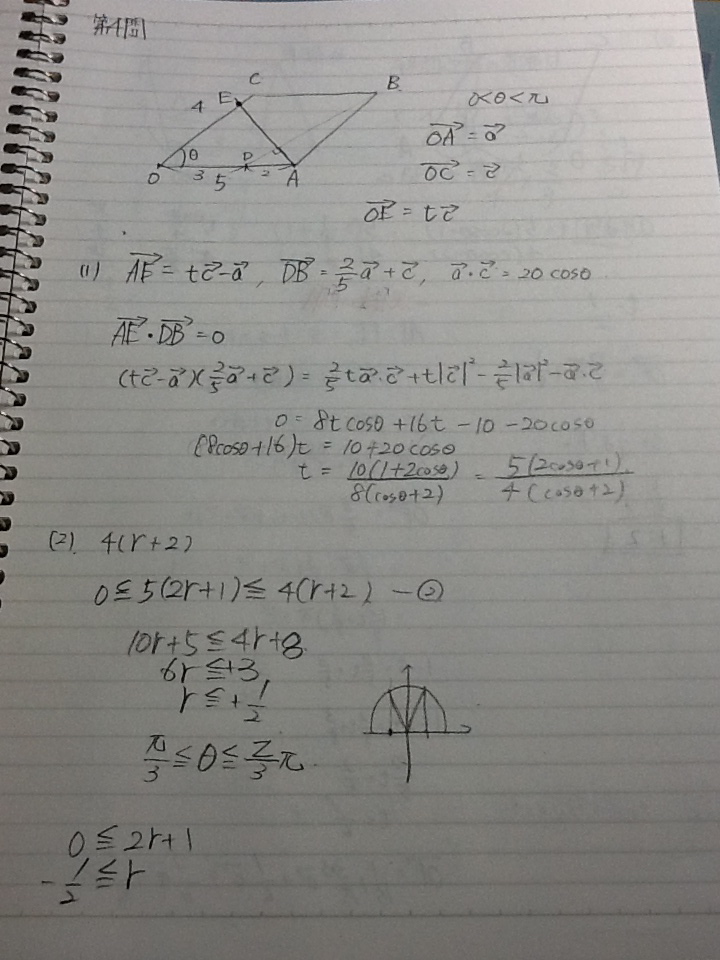 第4問
C
B
4 E
0<θ<π
θ
D
O 3 5 2 A
OA→ = a→
OC→ = c→
OE→ = tc→
(1) AE→ = tc→-a→, DB→ = 2/5 a→+c→, a→・c→ = 20 cosθ
AE→・DB→ = 0
(tc→-a→)(2/5 a→+c→) = 2/5 ta→・c→+t|c→|²-2/5|a→|²-a→・c→
0 = 8t cosθ +16t -10 -20cosθ
(8cosθ+16)t = 10+20cosθ
t = 10(1+2cosθ)/8(cosθ+2) = 5(2cosθ+1)/4(cosθ+2)
(2) 4(r+2)
0≦5(2r+1)≦4(r+2) —②
10r+5≦4r+8
6r≦+3
r≦+1/2
π/3≦θ≦2/3π
0≦2r+1
-1/2≦r